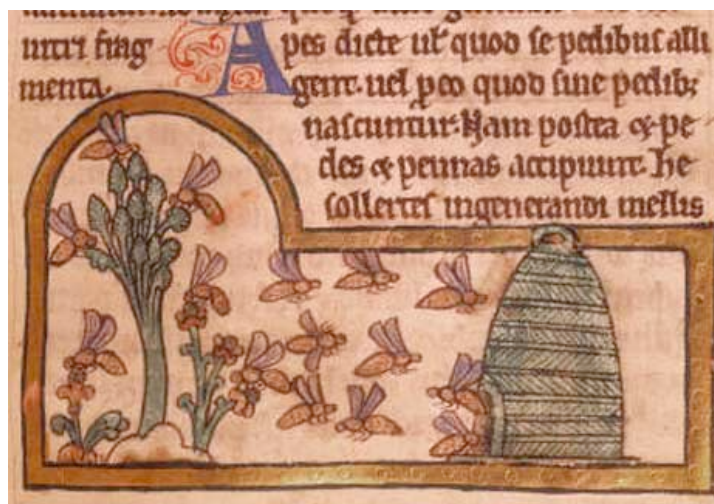 frag Apes dicte uł quod se pedibus alli
menta. gent. uel ꝑeo quod sine pedibꝫ
nascuntur. Nam postea & pe
des & pennas accipiunt. he
sollertes ingenerandi mellis